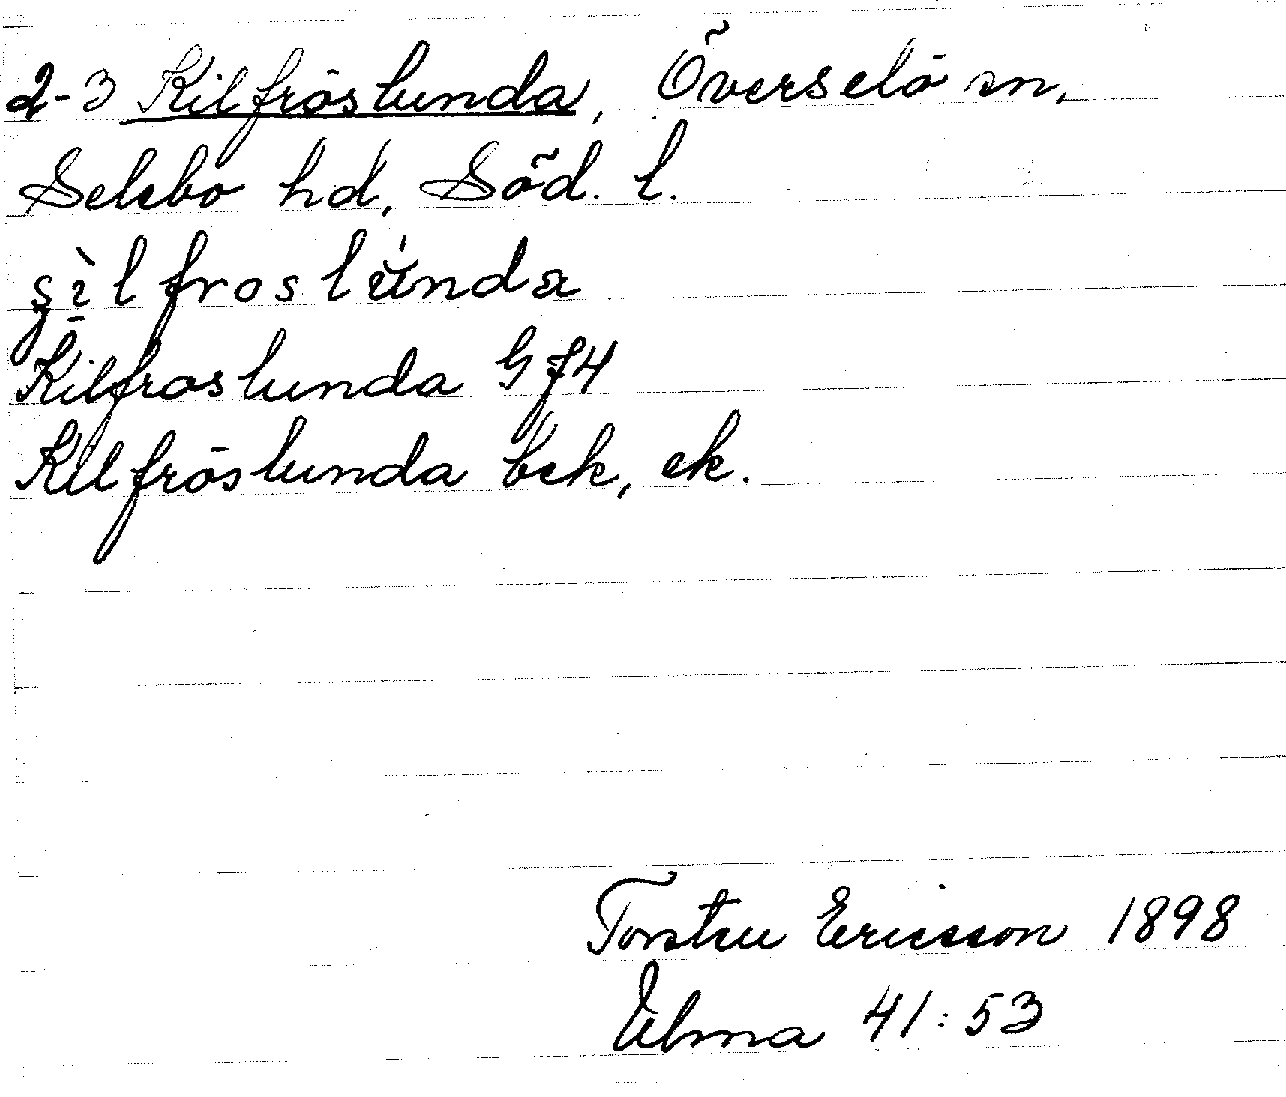 2-3 Kilfröslunda, Överselö sn,
Selebo hd, Söd. l.
şìlfroslúnda
Kilfroslunda G J4
Kilfröslunda bek, ek.
Torsten Ericsson 1898
Ulma 41:53